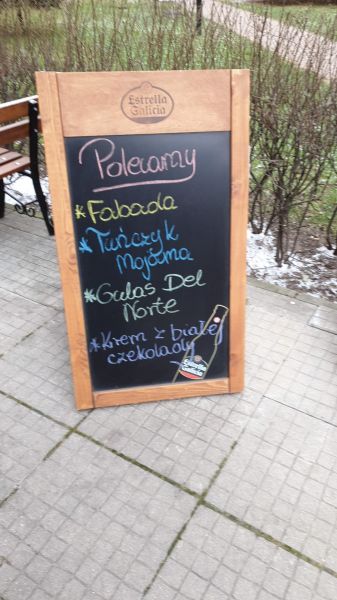 Estrella
Galicia
Polecamy
*Fabada
*Tuńczyk
Mojama
*Gulas Del
Norte
*Krem z białej
czekolady
Estrella
Galicia